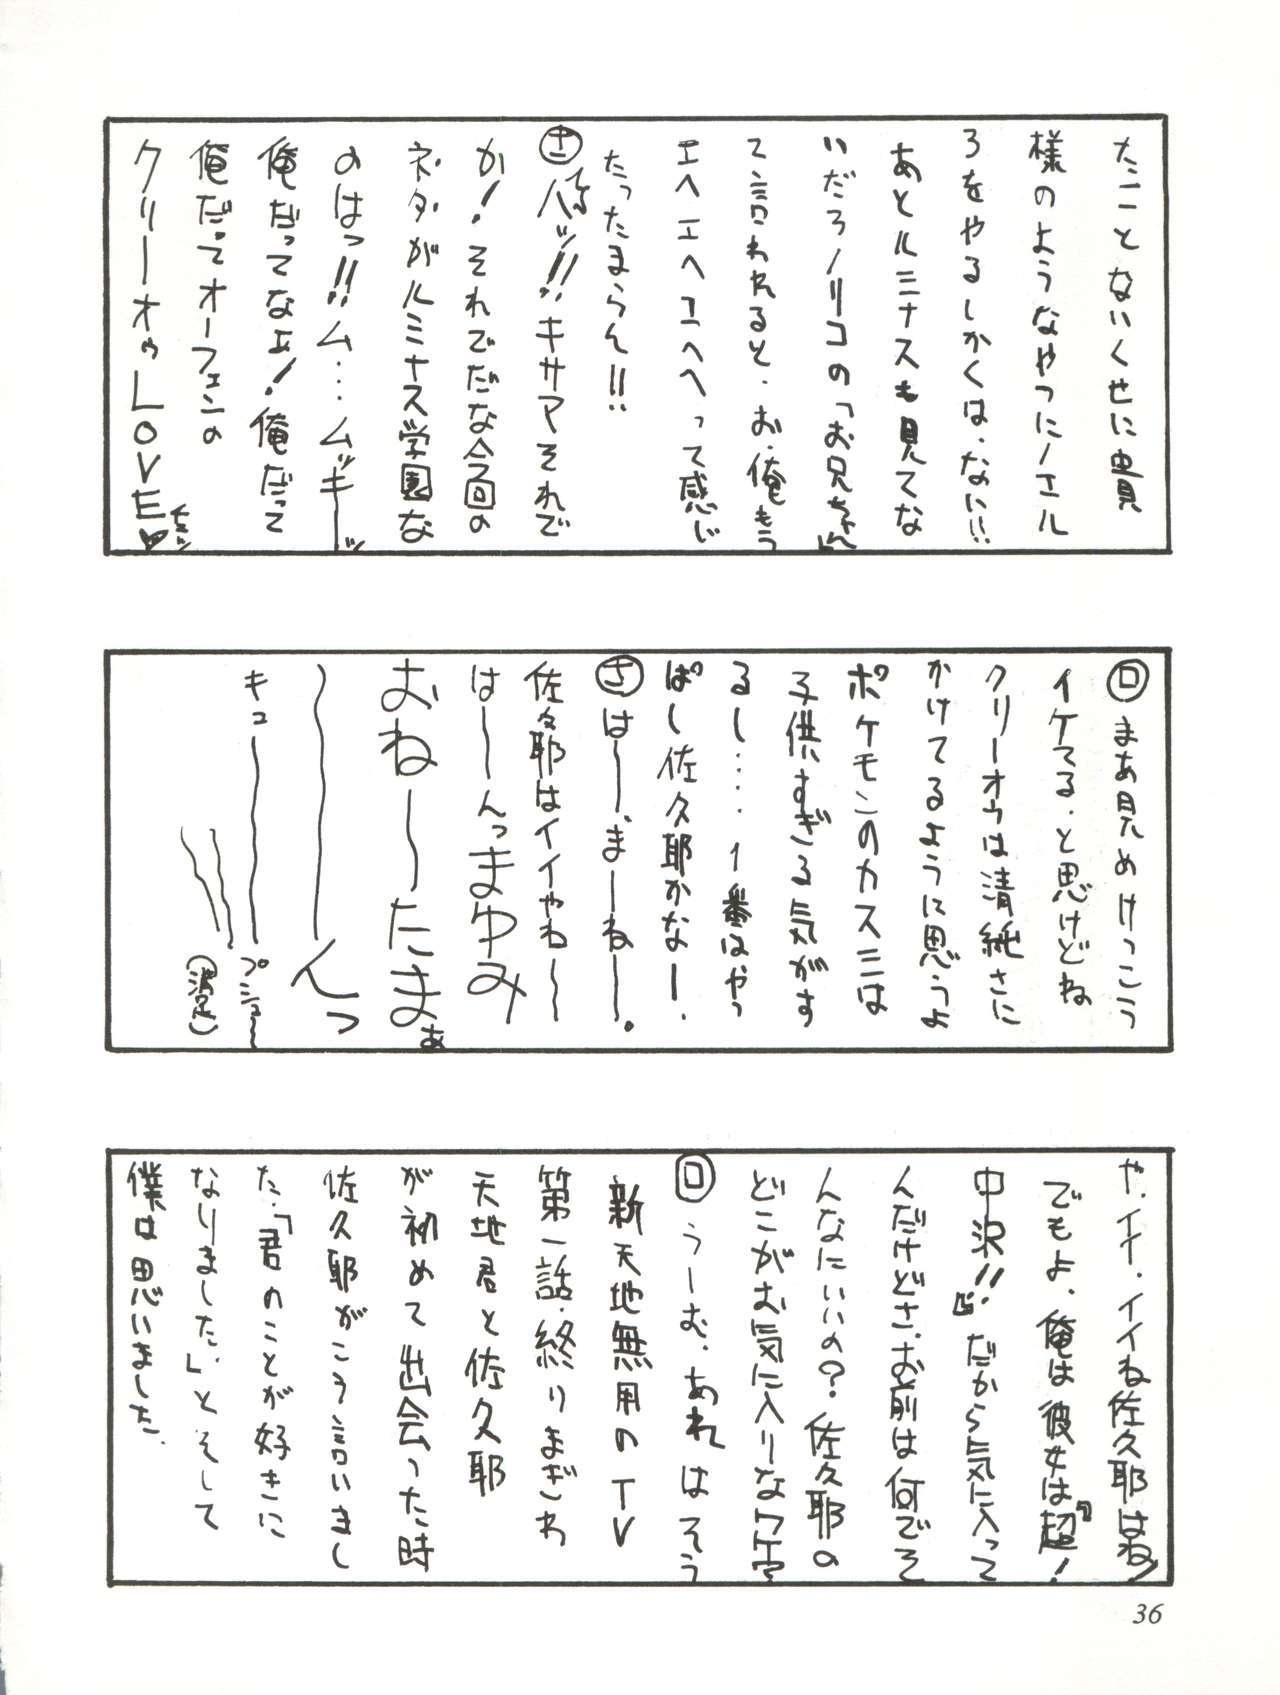 たことないくせに貴
様のようなやつにノエル
ろをやるしかくは、ない!!
あとルミナスも見てな
いだろノリコの「お兄ちゃん」
て言われると、お、俺もう
エヘエヘエヘヘって感じ
たったまらん!!
キサマそれで
か!それでだな今回の
ネタがルミナス学園な
のはっ!!ム…ムッキーッ
俺だってなェ!俺だって
俺だってオーフェンの
クリーオゥLOVE♥
ロ まあ見めけっこう
イケてる、と思けどね
クリーオウは清純さに
かけてるように思うよ
ポケモンのカスミは
子供すぎる気がす
るし….1番はやっ
ぱし佐久耶かなー.
さ は〜、ま〜ね〜。
佐久耶はイイやね〜
は〜んっまゆみ
おね〜たまぁ
〜んっ
キュ〜
プシュ〜
(満足)
や、イイ、イイね佐久耶はね!
でもよ、俺は彼女は『超!
中沢!!』だから気に入って
んだけどさ、お前は何でそ
んなにいいの?佐久耶の
どこがお気に入りなワケ?
ロ うーむ、あれはそう
新天地無用のTV
第一話、終りまぎわ
天地君と佐久耶
が初めて出会った時
佐久耶がこう言いまし
た、「君のことが好きに
なりました、」とそして
僕は思いました、
36